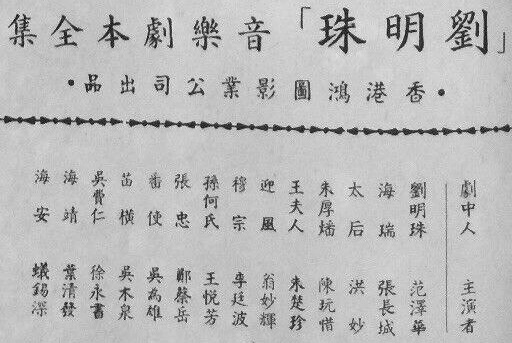 「劉明珠」音樂劇本全集
•香港鴻圖影業公司出品•
劇中人 主演者
劉明珠 范澤華
海瑞 張長城
太后 洪妙
朱厚燔 陳玩惜
王夫人 朱楚珍
迎風 翁妙輝
穆宗 李廷波
孫何氏 王悦芳
張忠 鄭蔡岳
番使 吳為雄
苗橫 吳木泉
吳費仁 徐永書
海靖 葉清發
海安 蟻錫深